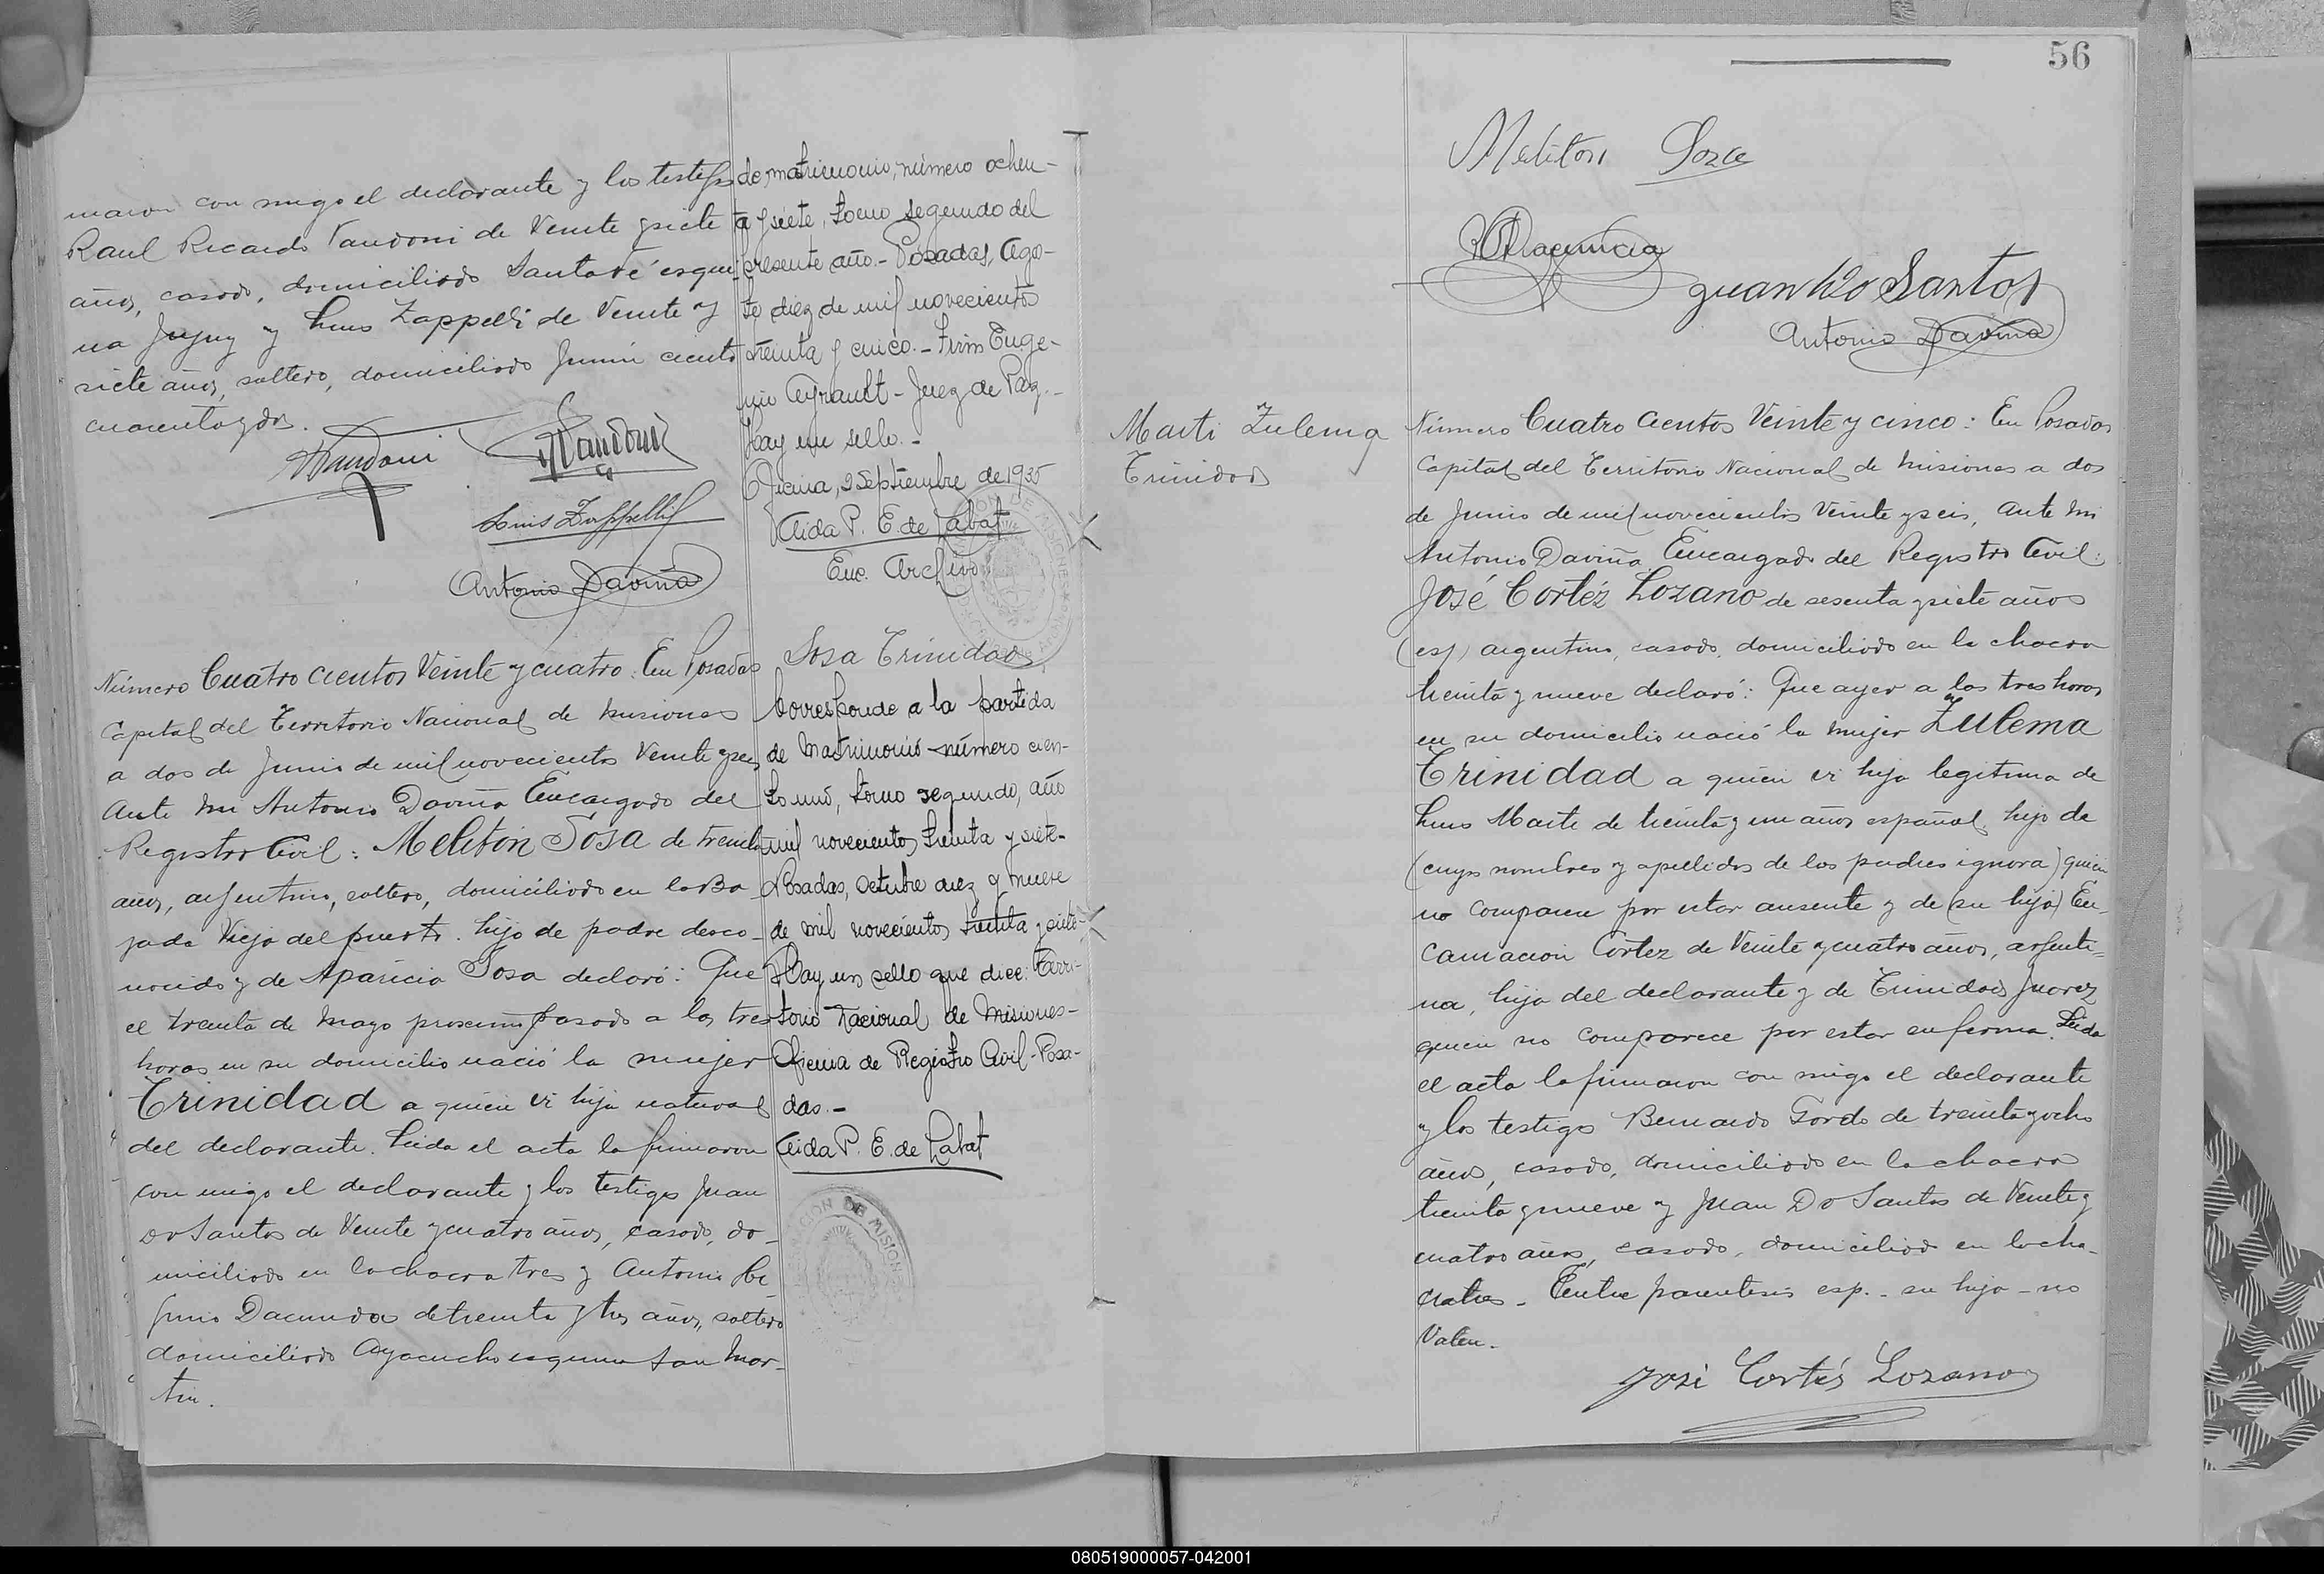 maron con migo el declarante y los testigos
Raul Ricardo Vandoni de Veinte y siete
años, casado, domiciliado Santa Fé esqui
na Jujuy y Luis Zappelli de Veinte y
siete años, soltero, domiciliado Junin ciento
cuarenta y dos.
Luis Zappelli
Antonio Daviña
Número Cuatro cientos Veinte y cuatro: En Posadas
Capital del Territorio Nacional de Misiones
a dos de Junio de mil novecientos Veinte y seis
Ante mi Antonio Daviña Encargado del
Registro Civil: Meliton Sosa de treinta
años, argentino, soltero, domiciliado en la Ba
jada Vieja del puerto. hijo de padre desco-
nocido y de Aparicia Sosa declaró: Que
el treinta de Mayo proximo pasado a las tres
horas en su domicilio nació la mujer
Trinidad a quien vi hija natural
del declarante. Leida el acta la firmaron
con migo el declarante y los testigos Juan
Do Santos de Veinte y cuatro años, casado, do-
miciliado en la chacra tres y Antonio
de treinta y tres años, soltero
domiciliado Ayacucho esquina San Mar-
tin.
de matrimonio, número ochen-
ta y siete, tomo segundo del
presente año.- Posadas, Ago-
to diez de mil novecientos
treinta y cinco.- Firm Euge-
nio Ayrault - Juez de Paz.-
Hay un sello.-
Oficina, 2 Septiembre de 1935
Aida P. E. de Labat
Enc. Archivo
Sosa Trinidad
Corresponde a la partida
de Matrimonio número cien-
to uno, tomo segundo, año
mil novecientos treinta y siete-
Posadas, Octubre diez y nueve
de mil novecientos treinta y siete-
Hay un sello que dice: Terri-
torio Nacional de Misiones-
Oficina de Registro Civil-Posa-
das.-
Aida P. E. de Labat
56
Meliton Sosa
Juan Do Santos
Antonio Daviña
Marti Zulema
Trinidad
Número Cuatro cientos Veinte y cinco: En Posadas
Capital del Territorio Nacional de Misiones a dos
de Junio de mil novecientos Veinte y seis, Ante mi
Antonio Daviña Encargado del Registro Civil:
José Cortéz Lozano de sesenta y siete años
(esp) argentino, casado, domiciliado en la chacra
treinta y nueve declaró: Que ayer a las tres horas
en su domicilio nació la mujer Zulema
Trinidad a quien vi hija legitima de
Luis Marti de treinta y un años español, hijo de
(cuyos nombres y apellidos de los padres ignora) quien
no comparece por estar ausente y de (su hija) En-
carnacion Cortez de Veinte y cuatro años, argenti=
na, hija del declarante y de Trinidad Juarez
quien no comparece por estar enferma. Leida
el acta la firmaron con migo el declarante
y los testigos Bernardo Gordo de treinta y ocho
años, casado, domiciliado en la chacra
treinta y nueve y Juan Do Santos de Veinte y
cuatro años, casado, domiciliado en la cha-
cra tres - Entre parentesis esp. - su hija - no
Valen.
José Cortés Lozano
080519000057-042001